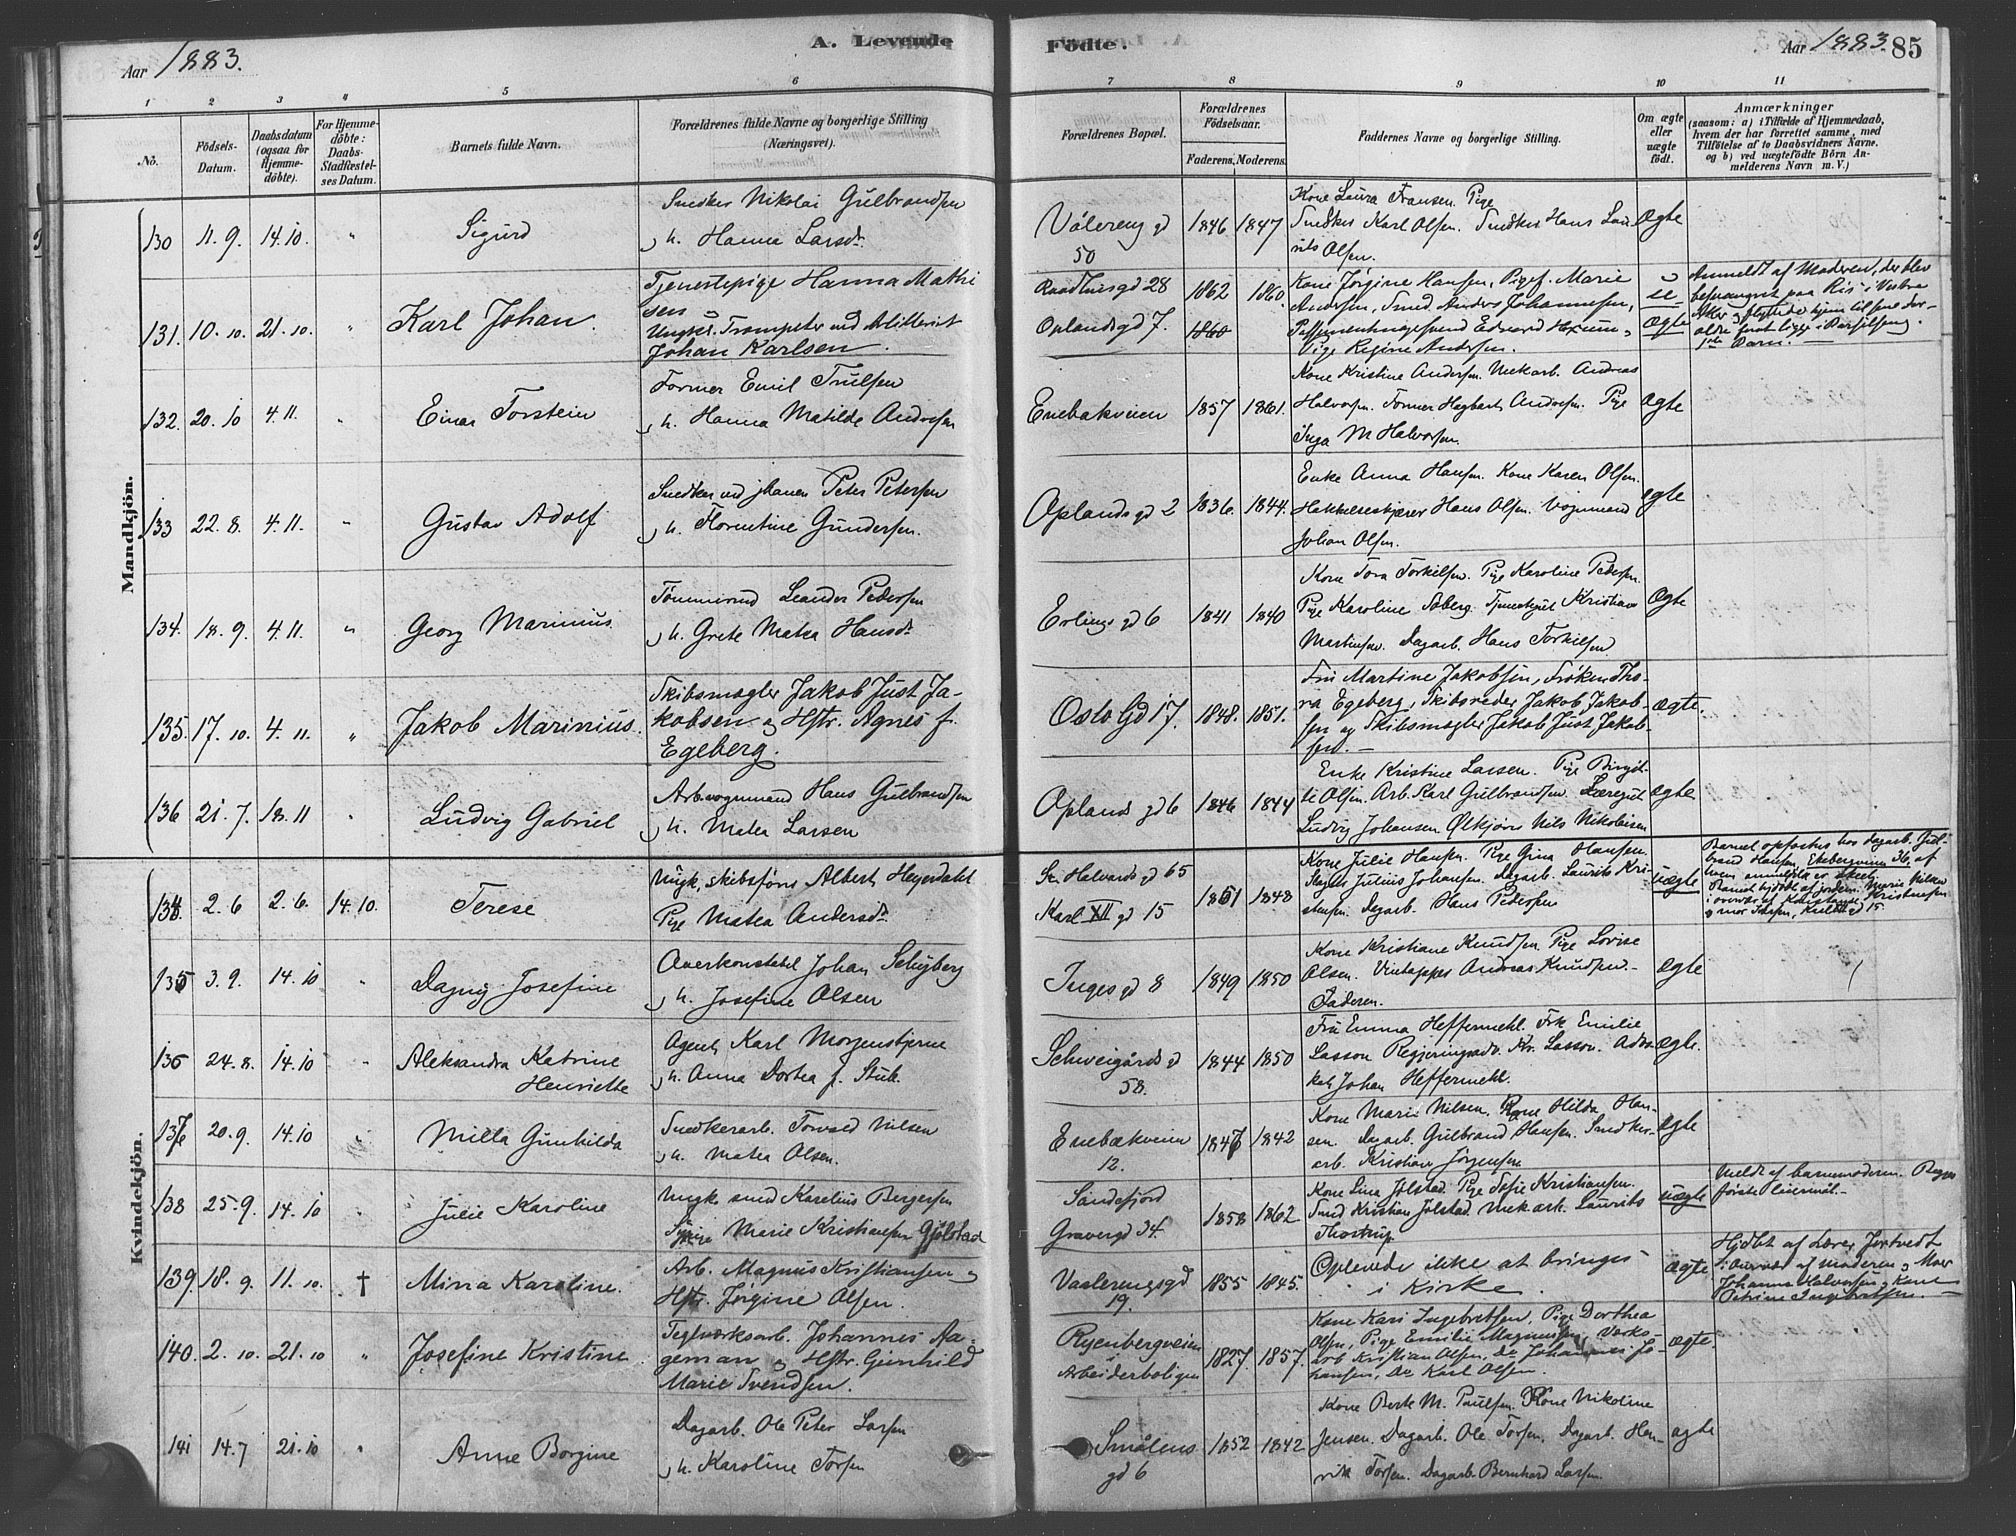 Aar 1883.
A. Levende
Födte.
Aar 1883.
85
1 2 3 4 5 6 7 8 9 10 11
No.
Födsels-Datum.
Daabsdatum (ogsaa for Hjemme-döbte).
For Hjemme-döbte: Daabs-Stadfæstelses Datum.
Barnets fulde Navn.
Forældrenes fulde Navne og borgerlige Stilling (Næringsvei).
Forældrenes Bopæl.
Forældrenes Födselsaar.
Faderens. Moderens.
Faddernes Navne og borgerlige Stilling.
Om ægte eller uægte födt.
Anmærkninger
(saasom: a) i Tilfælde af Hjemmedaab,
hvem der har forrettet samme, med
Tilföielse af to Daabsvidners Navne.
og b) ved uægtefödte Börn An-
melderens Navn m. V.)
Mandkjön.
130 11.9. 14.10. " Sigurd
Snedker Nikolai Gulbrandsen
H. Hanna Larsd.
Vålereng gd
50
1846 1847
Kone Laura Fransen. Pige
Snedker Karl Olsen. Snedker Hans Lau-
rits Olsen.
Ægte
131. 10.10. 21.10. " Karl Johan.
Tjenestepige Hanna Mathi
sen
Ungkl. Trompeter ved Artilleriet
Johan Karlsen.
Raadhusgd 28
Oplandsgd 7.
1862 1860.
1860
Kone Jørgine Hansen, Pige Marie
Andersen, Smed Anders Johannesen,
Eduard
Pige Regine Andersen.
u
ægte
Anmeldt af Moderen, der blev
besvangret paa Ris i Vestre
Aker og flyttede hjem til sine For-
ældre for at ligge i Barselseng.
1ste Barn.
132. 20.10 4.11. " Einar Torstein
Former Emil Trulsen
H. Hanna Matilde Andersen
Enebakveien
1857 1861.
Kone Kristine Andersen. Mekarb. Andreas
Halvorsen. Former Hagbart Andersen. Pige
Inga M Halvorsen.
Ægte
133 22.8. 4.11. " Gustav Adolf
Snedker ved jbanen Peter Petersen
H. Florentine Gundersen.
Oplandsgd 2
1836. 1844.
Enke Anna Hansen. Kone Karen Olsen.
Hakkelseskjærer Hans Olsen. Vognmand
Johan Olsen.
Ægte
134. 18.9. 4.11. " Georg Marinius
Tømmermd Leander Pedersen
H. Grete Matea Hansd.
Erlings gd 6
1841 1840
Kone Tora Torkilsen. Pige Karoline Pedersen
Pige Karoline Soberg. Tjenestegut Kristian
Martinsen. Dagarb. Hans Torkilsen
Ægte
135. 17.10. 4.11. " Jakob Marinius.
Skibsmægler Jakob Just Ja-
kobsen og Hstr. Agnes f.
Egeberg.
Oslo Gd 17.
1848. 1851.
Fru Martine Jakobsen, Frøken Tho-
ra Egeberg, Skibsreder Jakob Jakob-
sen og Skibsmægler Jakob Just Jakob-
sen.
ægte.
136 21.7. 18.11 " Ludvig Gabriel
Arb.vognmand Hans Gulbrandsen
H. Matea Larsen
Oplands gd 6
1846 1844
Enke Kristine Larsen. Pige Birgit-
te Olsen. Arb. Karl Gulbrandsen. Læregut
Ludvig Johansen Ølkjører Nils Nikolaisen
ægte
Kvindekjön.
134. 2.6 2.6. 14.10. Terese
Ungk. skibsfører Albert Heyerdahl
Pige Matea Andersd.
St. Halvards gd 65
Karl XII gd 15
1851 1848
Kone Julie Hansen. Pige Gina Hansen.
Slagter Julius Johansen. Dagarb. Laurits Kri-
stensen. Dagarb. Hans Pedersen
uægte
Barnet opfostres hos dagarb. Gul-
brand Hansen, Ekebergveien 36, af
hvem anmeldelse er skeet.
Barnet hjdöbt af jordem. Marie Nilsen
i overvær af Konstanse Kristensen
135 3.9. 14.10 " Dagny Josefine
Overkonstabel Johan Schyberg
H. Josefine Olsen
Inges gd 8
1849 1850
Kone Kristiane Knudsen Pige Lovise
Olsen. Vintapper Andreas Knudsen.
Faderen.
Ægte
135 24.8. 14.10 " Aleksandra Katrine
Henriette
Agent Karl Morgenstjerne
H. Anna Dortea f. Stub.
Schweigårds gd
58.
1844 1850
Fru Emma Heffermehl. Frk Emilie
Lasson Regjeringsadv. Kr. Lasson. Advo-
kat Johan Heffermehl.
ægte.
137 20.9. 14.10 " Milla Gunhilda
Snedkerarb. Torvald Nilsen
H. Matea Olsen.
Enebakveien
12.
1847 1842
Kone Marie Nilsen. Kone Hilda Han-
sen. Dagarb. Gulbrand Hansen. Snedker-
arb. Kristian Jörgensen
ægte
138 25.9. 14.10 " Julie Karoline
Ungk. smed Karelius Bergersen
Sypige Marie Kristiansen Gjølstad
Sandefjord
Gravergd 34.
1858 1862
Kone Lina Jølstad. Pige Sofie Kristiansen.
Smed Kristian Jølstad Mekarb. Laurits
Thostrup
uægte
Meldt af barnemoderen. Begges
første leiermål.
139. 18.9. 11.10. † Minna Karoline.
Arb. Magnus Kristiansen og
Hstr. Jørgine Olsen.
Vaalerengsgd
19.
1855 1845.
Oplevede ikke at bringes
i Kirke.
ægte
Hjdöbt af Lærer Jortvedt
i Overvær af Moderen og Mor
Johanne Halvorsen og Kone
Petrine Ingebretsen.
140. 2.10. 21.10 " Josefine Kristine
Teglværksarb. Johannes Aa-
geman og Hstr. Gunhild
Marie Svendsen.
Ryenbergveien
Arbeiderboligen
1827. 1857.
Kone Kari Ingebretsen, Pige Dorthea
Olsen, Pige Emilie Magnussen, Værks-
arb Kristian Olsen, Do Johannes Jo-
hansen, Do Karl Olsen.
ægte.
141 14.7 21.10 " Anne Borgine
Dagarb. Ole Peter Larsen
H. Karoline Torsen
Smålens
gd 6
1852 1842
Kone Berte M. Paulsen Kone Nikoline
Jensen. Dagarb. Ole Torsen. Dagarb. Hen-
rik Torsen. Dagarb Bernhard Larsen.
ægte